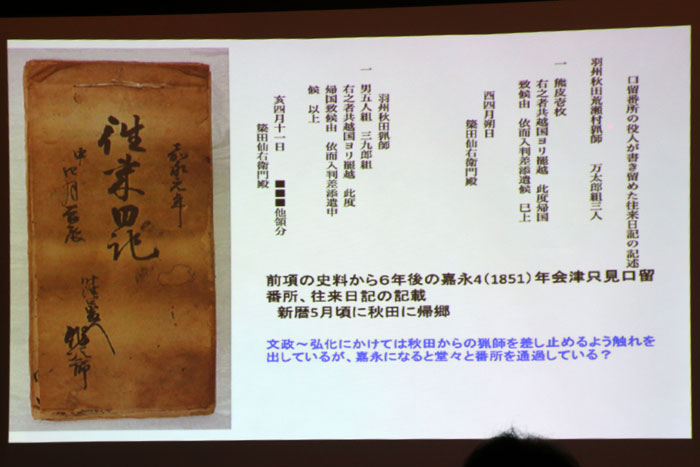 口留番所の役人が書き留めた往来日記の記述
羽州秋田荒瀬村猟師　万太郎組三人
一　熊皮壱枚
右之者共越国ヨリ罷越　此度帰国
致候由　依而入判差添遣候　已上
酉四月朔日
簗田仙右衛門殿
羽州秋田猟師
一　男五人組　三九郎組
右之者共越国ヨリ罷越　此度
帰国致候由　依而入判差添遣申
候　以上
亥四月十一日　■■■他領分
簗田仙右衛門殿
前項の史料から6年後の嘉永4(1851)年会津只見口留
番所、往来日記の記載
新暦5月頃に秋田に帰郷
文政～弘化にかけては秋田からの猟師を差し止めるよう触れを
出しているが、嘉永になると堂々と番所を通過している？
嘉永元年
往来日記
申四月